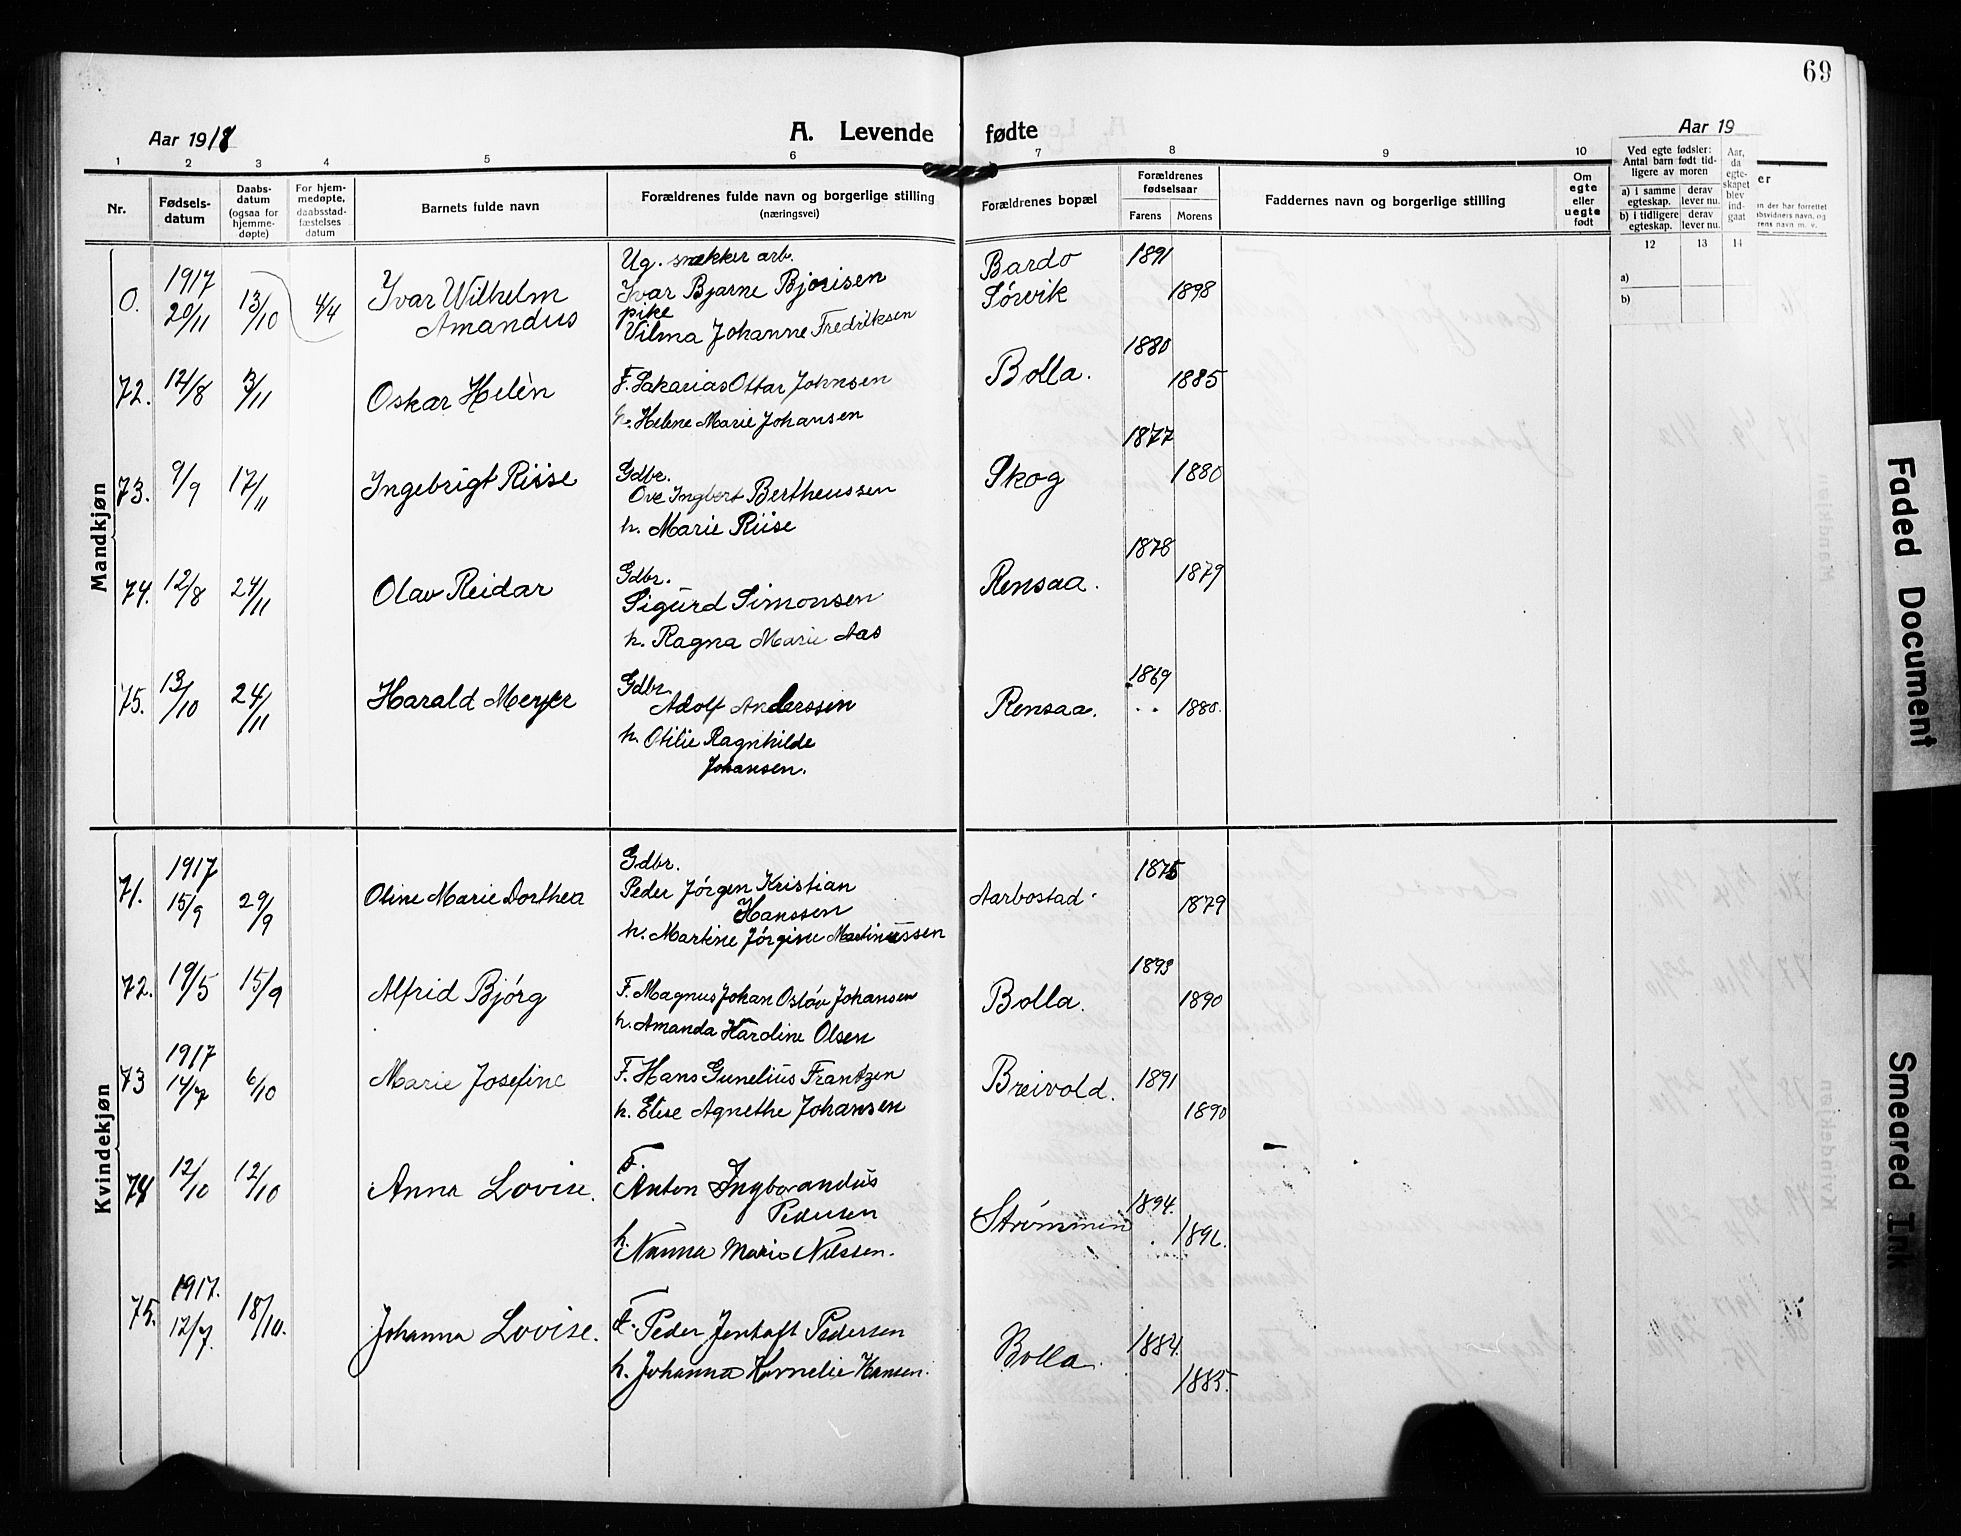 69
Aar 1918
A. Levende fødte
Aar 19
1 2 3 4 5 6 7 8 9 10
Nr.
Fødsels-
datum
Daabs-
datum
(ogsaa for
hjemme-
døpte)
For hjem-
medøpte,
daabsstad-
fæstelses
datum
Barnets fulde navn
Forældrenes fulde navn og borgerlige stilling
(næringsvei)
Forældrenes bopæl
Forældrenes
fødselsaar
Farens Morens
Faddernes navn og borgerlige stilling
Om
egte
eller
uegte
født
Ved egte fødsler:
Antal barn født tid-
ligere av moren
a) i samme
egteskap.
derav
lever nu.
b) i tidligere
egteskap.
derav
lever nu.
Aar,
da
egte-
skapet
blev
ind-
gaat
12 13 14
a)
b)
er
n der har forrettet
absvidners navn, og
rens navn m. v.
Mandkjøn
0. 1917 20/11 13/10 4/4 Ivar Wilhelm
Amandus
Ug. snekker arb.
Ivar Bjarne Bjørisen
pike
Vilma Johanne Fredriksen
Bardo
Sørvik
1891
1898
72. 12/8 3/11 Oskar Helèn
F. Sakarias Ottar Johnsen
h. Helene Marie Johansen
Bolla.
1880
1885
73. 9/9 17/11 Ingebrigt Riise
Gdbr.
Ove Ingbert Bertheussen
h. Marie Riise
Skog
1877
1880
74. 12/8 24/11 Olav Reidar
Gdbr.
Sigurd Simonsen
h. Ragna Marie Aas
Rensaa.
1878
1879
75. 13/10 24/11 Harald Meyer
Gdbr.
Adolf Anderssen
h. Otilie Ragnhilde
Johansen.
Rensaa.
1869
1880.
Kvindekjøn
71. 1917 15/9 29/9 Oline Marie Dorthea
Gdbr.
Peder Jørgen Kristian
Hanssen
h. Martine Jørgine Martinussen
Aarbostad
1875
1879
72. 19/5 15/9 Alfrid Bjørg
F. Magnus Johan Osløv Johansen
h. Amanda Hardine Olsen
Bolla.
1893
1890
73 1917 14/7 6/10 Marie Josefine
F. Hans Gunelius Frantzen
h. Elise Agnethe Johansen
Breivold.
1891
1890
74 12/10 12/10 Anna Lovise.
F.
Anton Ingvarandus
Pedersen
h. Nanna Marie Nilssen.
Strømmen
1894.
1896.
75. 1917. 12/7. 18/10. Johanna Lovise.
F. Peder Jentoft Pedersen
h. Johanna Kornelie Hansen.
Bolla.
1884.
1885.
Faded Document
Smeared Ink